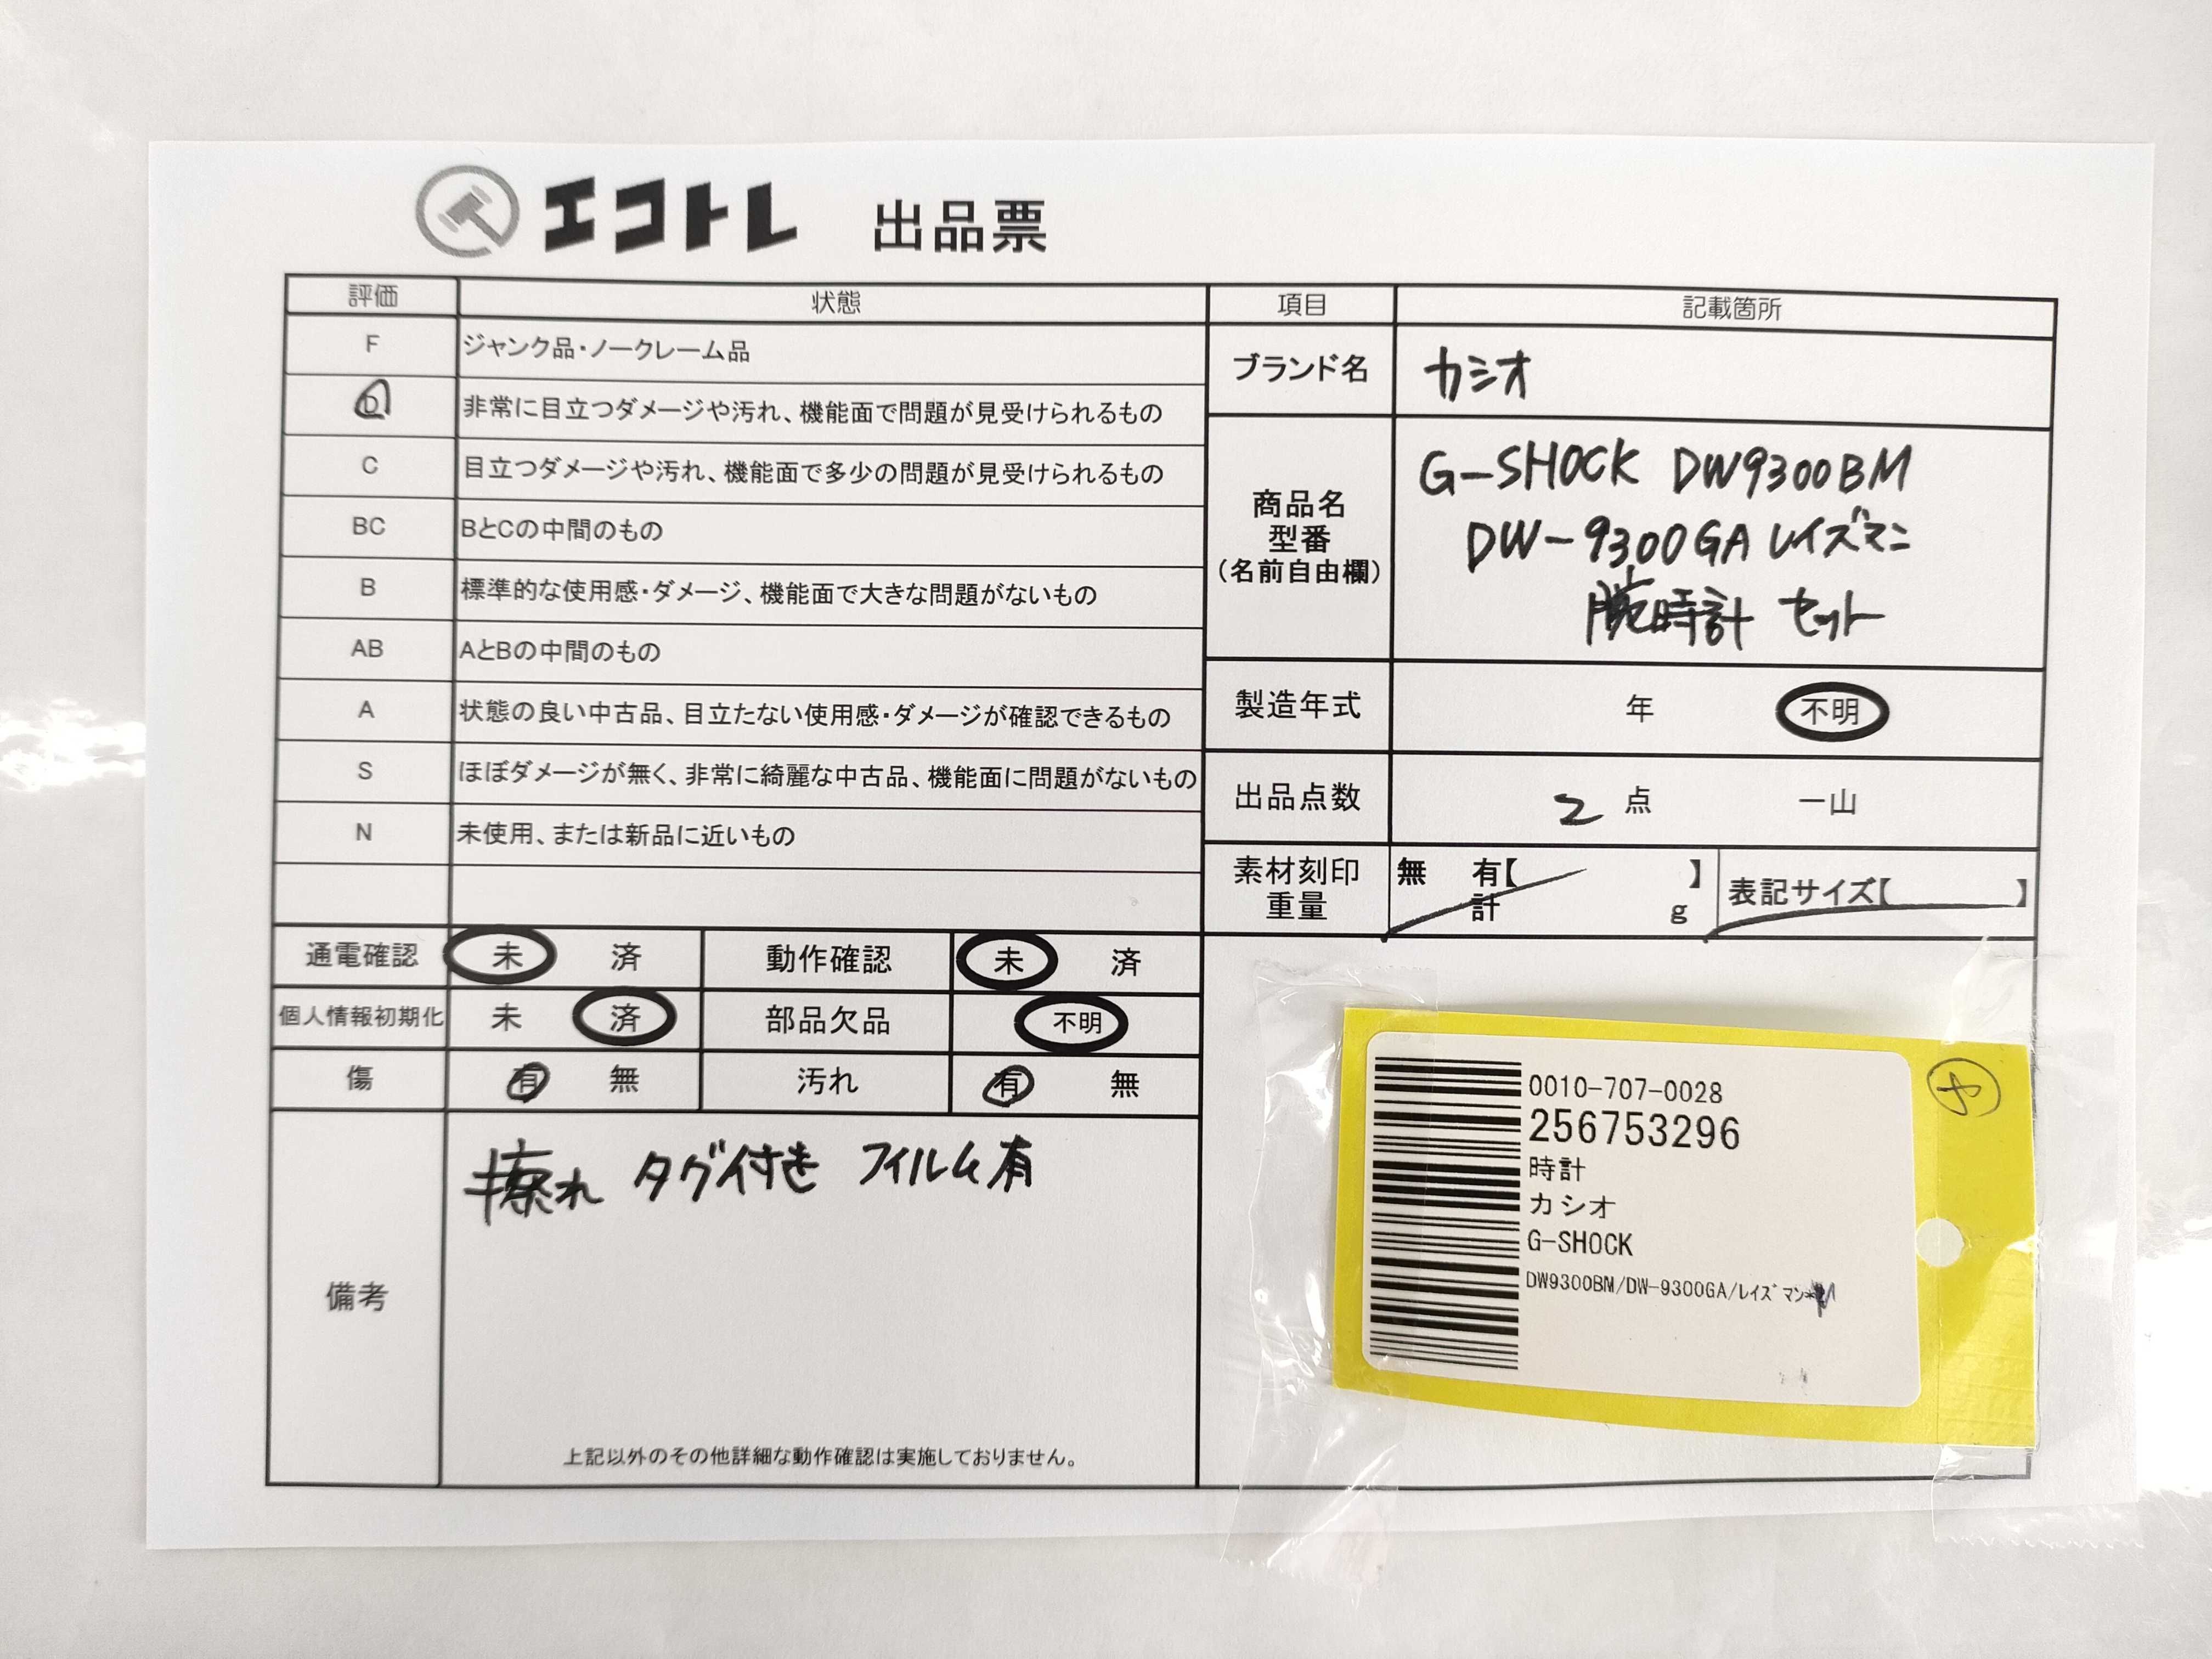 エコトレ 出品票
評価 状態
F ジャンク品・ノークレーム品
D 非常に目立つダメージや汚れ、機能面で問題が見受けられるもの
C 目立つダメージや汚れ、機能面で多少の問題が見受けられるもの
BC BとCの中間のもの
B 標準的な使用感・ダメージ、機能面で大きな問題がないもの
AB AとBの中間のもの
A 状態の良い中古品、目立たない使用感・ダメージが確認できるもの
S ほぼダメージが無く、非常に綺麗な中古品、機能面に問題がないもの
N 未使用、または新品に近いもの
通電確認 未 済 動作確認 未 済
個人情報初期化 未 済 部品欠品 不明
傷 有 無 汚れ 有 無
備考
擦れ タグ付き フィルム有
上記以外のその他詳細な動作確認は実施しておりません。
項目 記載箇所
ブランド名 カシオ
商品名
型番
(名前自由欄)
G-SHOCK DW9300BM
DW-9300GA レイズマン
腕時計 セット
製造年式 年 不明
出品点数 2 点 一山
素材刻印 無 有【 】
重量 計 g
表記サイズ【 】
0010-707-0028
256753296
時計
カシオ
G-SHOCK
DW9300BM/DW-9300GA/レイズマン*